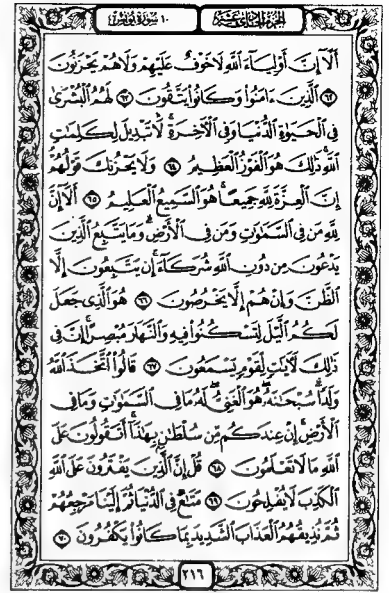 الجزء الحادي عشر ١٠ سورة يونس
أَلَا إِنَّ أَوْلِيَاءَ اللَّهِ لَا خَوْفٌ عَلَيْهِمْ وَلَا هُمْ يَحْزَنُونَ
٦٢ الَّذِينَ ءَامَنُوا وَكَانُوا يَتَّقُونَ ٦٣ لَهُمُ الْبُشْرَىٰ
فِي الْحَيَوٰةِ الدُّنْيَا وَفِي الْآخِرَةِ لَا تَبْدِيلَ لِكَلِمَاتِ
اللَّهِ ذَٰلِكَ هُوَ الْفَوْزُ الْعَظِيمُ ٦٤ وَلَا يَحْزُنكَ قَوْلُهُمْ
إِنَّ الْعِزَّةَ لِلَّهِ جَمِيعًا هُوَ السَّمِيعُ الْعَلِيمُ ٦٥ أَلَا إِنَّ
لِلَّهِ مَن فِي السَّمَٰوَٰتِ وَمَن فِي الْأَرْضِ وَمَا يَتَّبِعُ الَّذِينَ
يَدْعُونَ مِن دُونِ اللَّهِ شُرَكَاءَ إِن يَتَّبِعُونَ إِلَّا
الظَّنَّ وَإِنْ هُمْ إِلَّا يَخْرُصُونَ ٦٦ هُوَ الَّذِي جَعَلَ
لَكُمُ الَّيْلَ لِتَسْكُنُوا فِيهِ وَالنَّهَارَ مُبْصِرًا إِنَّ فِي
ذَٰلِكَ لَآيَٰتٍ لِّقَوْمٍ يَسْمَعُونَ ٦٧ قَالُوا اتَّخَذَ اللَّهُ
وَلَدًا سُبْحَٰنَهُ هُوَ الْغَنِيُّ لَهُ مَا فِي السَّمَٰوَٰتِ وَمَا فِي
الْأَرْضِ إِنْ عِندَكُم مِّن سُلْطَٰنٍ بِهَٰذَا أَتَقُولُونَ عَلَى
اللَّهِ مَا لَا تَعْلَمُونَ ٦٨ قُلْ إِنَّ الَّذِينَ يَفْتَرُونَ عَلَى اللَّهِ
الْكَذِبَ لَا يُفْلِحُونَ ٦٩ مَتَٰعٌ فِي الدُّنْيَا ثُمَّ إِلَيْنَا مَرْجِعُهُمْ
ثُمَّ نُذِيقُهُمُ الْعَذَابَ الشَّدِيدَ بِمَا كَانُوا يَكْفُرُونَ ٧٠
٢١٦